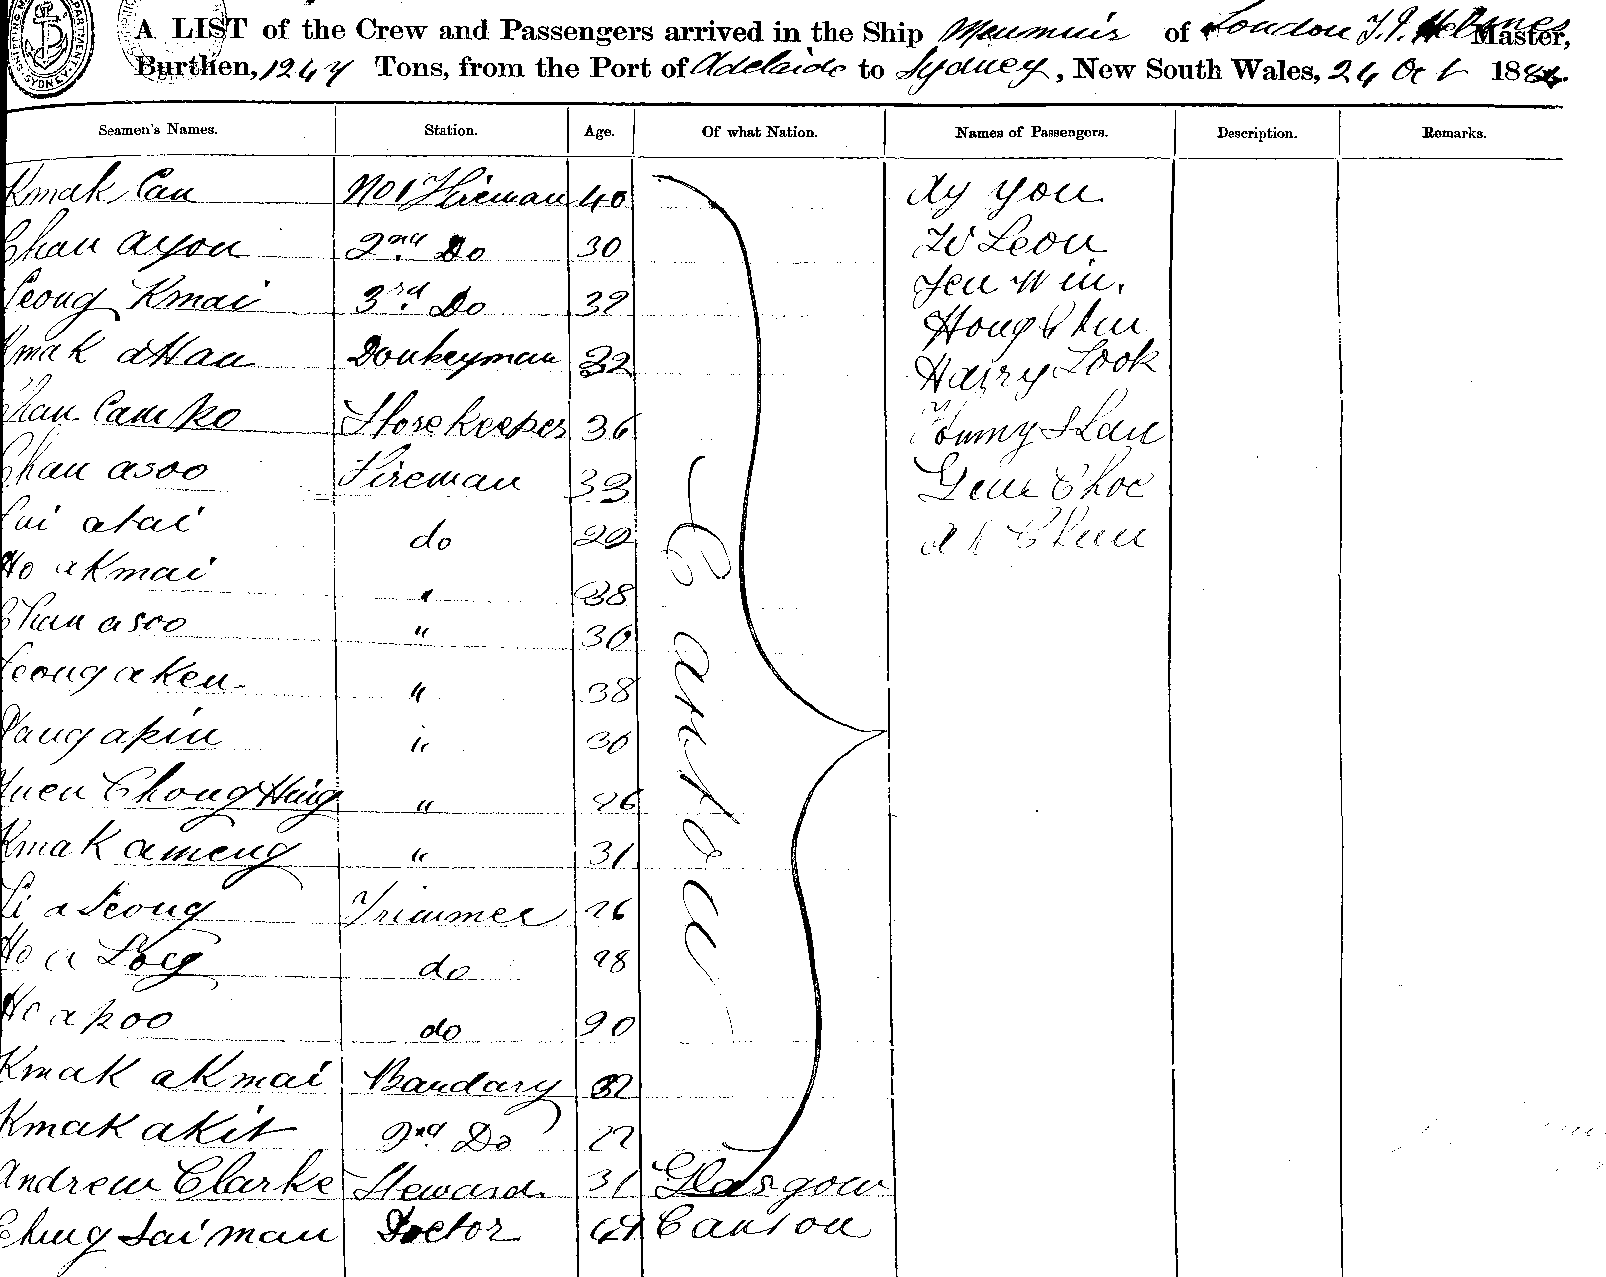 A LIST of the Crew and Passengers arrived in the Ship Menmuir of London Master,
Burthen, 1247 Tons, from the Port of Adelaide to Sydney, New South Wales, 24 Oct 188
Seamen's Names. Station. Age. Of what Nation. Names of Passengers. Description. Remarks.
Kmak Can No 1 Fireman 40 Ay You
Chan ayon 2nd Do 30 W Leon
Leong Kmai 3rd Do 32 Jen Win.
Kmak aHan Donkeyman 32 Hong Chin
Chan Cam po Storekeeper 36 Harry Look
Chan asoo Fireman 33 Tommy Shan
Lui atai do 29 Gene Choe
Ho aKmai " 38 Ah Chun
Chan asoo " 30
Leong aken " 38
Vang apin " 30
Yuen Chong Hing " 26
Kmak ameng " 31
Li a Seong Trimmer 26
Ho a Loy do 28
Ho a poo do 20
Kmak aKmai Bandary 32
Kmak akit 2nd Do 27
Canton
Andrew Clarke Steward 31 Glasgow
Ching Sai man Doctor Canton